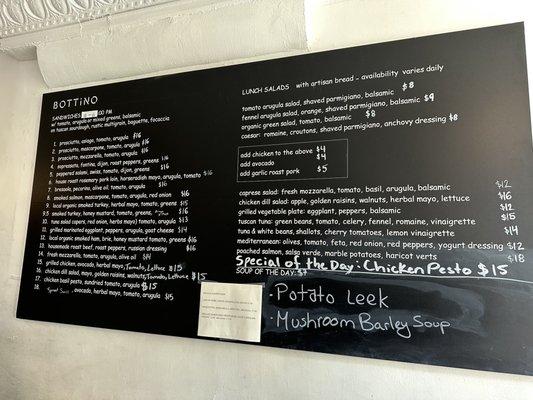 BOTTiNO
SANDWICHES
w/ tomato, arugula or mixed greens, balsamic
on tuscan sourdough, rustic multigrain, baguette, focaccia
1. prosciutto, asiago, tomato, arugula $16
2. prosciutto, mascarpone, tomato, arugula $16
3. prosciutto, mozzarella, tomato, arugula $16
4. sopressata, fontina, dijon, roast peppers, greens
5. peppered salami, swiss, tomato, dijon, greens $16
6. house roast rosemary pork loin, horseradish mayo, arugula, tomato $16
7. bresaola, pecorino, olive oil, tomato, arugula $16
8. smoked salmon, mascarpone, tomato, arugula, red onion $16
9. local organic smoked turkey, herbal mayo, tomato, greens $15
9.5 smoked turkey, honey mustard, tomato, greens, $16
10. tuna salad (capers, red onion, herbs mayo) tomato, arugula $13
11. grilled marinated eggplant, peppers, arugula, goat cheese $14
12. local organic smoked ham, brie, honey mustard, tomato, greens $16
13. housemade roast beef, roast peppers, russian dressing $16
14. fresh mozzarella, tomato, arugula, olive oil $14
15. grilled chicken, avocado, herbal mayo, Tomato, Lettuce $15
16. chicken dill salad, mayo, golden raisins, walnuts, Tomato, Lettuce $15
17. chicken basil pesto, sundried tomato, arugula $15
18. avocado, herbal mayo, tomato, arugula $15
LUNCH SALADS with artisan bread - availability varies daily
tomato arugula salad, shaved parmigiano, balsamic $8
fennel arugula salad, orange, shaved parmigiano, balsamic $9
organic green salad, tomato, balsamic $8
caesar: romaine, croutons, shaved parmigiano, anchovy dressing $8
add chicken to the above $4
add avocado $4
add garlic roast pork $5
caprese salad: fresh mozzarella, tomato, basil, arugula, balsamic $12
chicken dill salad: apple, golden raisins, walnuts, herbal mayo, lettuce $16
grilled vegetable plate: eggplant, peppers, balsamic $12
tuscan tuna: green beans, tomato, celery, fennel, romaine, vinaigrette $15
tuna & white beans, shallots, cherry tomatoes, lemon vinaigrette $14
mediterranean: olives, tomato, feta, red onion, red peppers, yogurt dressing $12
poached salmon, salsa verde, marble potatoes, haricot verts $18
Special of the Day: Chicken Pesto $15
SOUP OF THE DAY: $7
· Potato Leek
· Mushroom Barley Soup